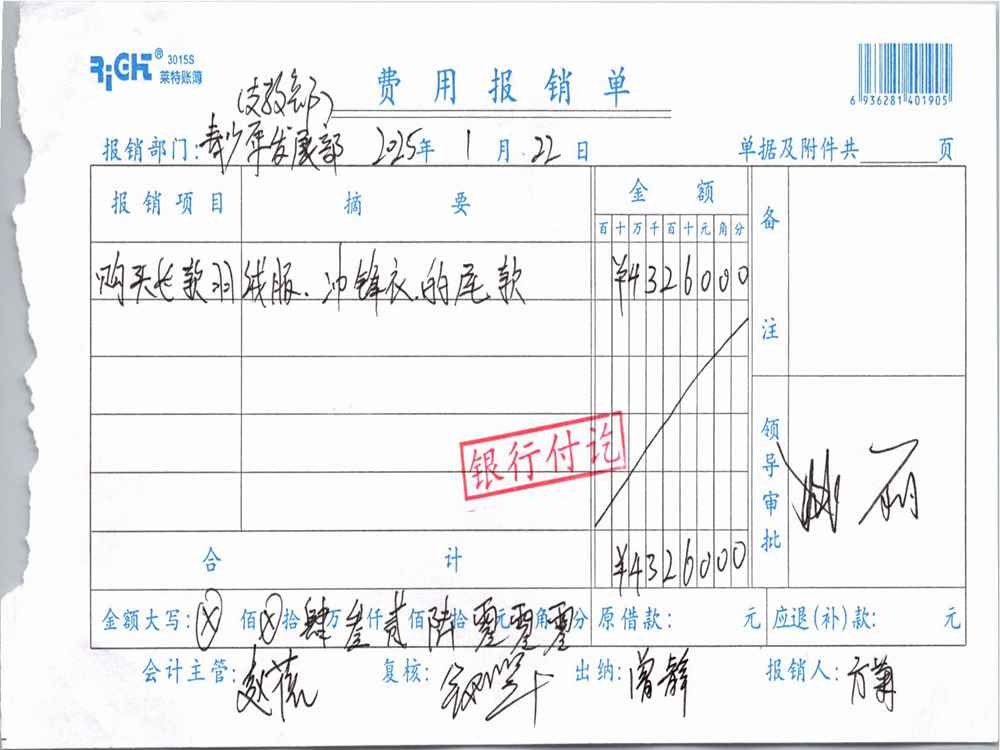 RiGHT® 3015S
莱特账簿
费用报销单
6 936281 401905
(支教部)
报销部门:青少年发展部 2025年 1月 22日 单据及附件共 页
报销项目 摘要 金额 备注
百十万千百十元角分
购买长款羽绒服、冲锋衣的尾款 ¥4326000
银行付讫
领导审批
合计 ¥4326000
金额大写: ⊗佰⊗拾肆万叁仟贰佰陆拾零元零角零分 原借款: 元 应退(补)款: 元
会计主管: 复核: 出纳:曾静 报销人:方菊